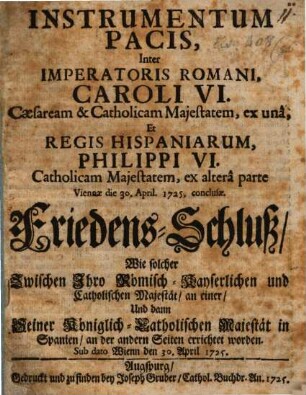 INSTRUMENTUM
PACIS,
Inter
IMPERATORIS ROMANI,
CAROLI VI.
Cæsaream & Catholicam Majestatem, ex unâ,
Et
REGIS HISPANIARUM,
PHILIPPI VI.
Catholicam Majestatem, ex alterâ parte
Viennæ die 30. April. 1725. conclusæ.
Friedens-Schluß/
Wie solcher
Zwischen Ihro Römisch-Kayserlichen und
Catholischen Majestät/ an einer/
Und dann
Seiner Königlich-Catholischen Majestät in
Spanien/ an der andern Seiten errichtet worden.
Sub dato Wienn den 30. April 1725.
Augspurg/
Gedruckt und zu finden bey Joseph Gruber/ Cathol. Buchdr. An. 1725.